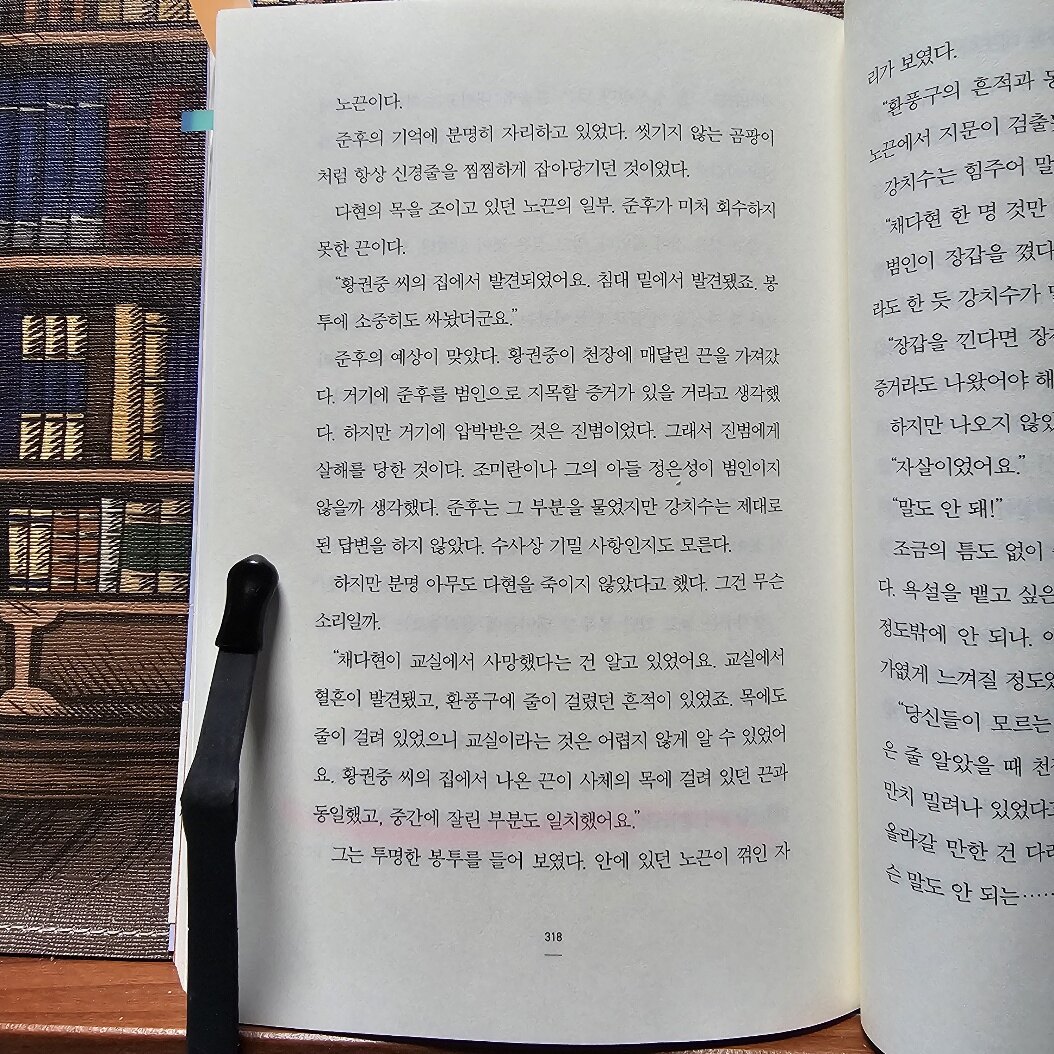 노끈이다.
준후의 기억에 분명히 자리하고 있었다. 씻기지 않는 곰팡이
처럼 항상 신경줄을 찜찜하게 잡아당기던 것이었다.
다현의 목을 조이고 있던 노끈의 일부. 준후가 미처 회수하지
못한 끈이다.
“황권중 씨의 집에서 발견되었어요. 침대 밑에서 발견됐죠. 봉
투에 소중히도 싸놨더군요.”
준후의 예상이 맞았다. 황권중이 천장에 매달린 끈을 가져갔
다. 거기에 준후를 범인으로 지목할 증거가 있을 거라고 생각했
다. 하지만 거기에 압박받은 것은 진범이었다. 그래서 진범에게
살해를 당한 것이다. 조미란이나 그의 아들 정은성이 범인이지
않을까 생각했다. 준후는 그 부분을 물었지만 강치수는 제대로
된 답변을 하지 않았다. 수사상 기밀 사항인지도 모른다.
하지만 분명 아무도 다현을 죽이지 않았다고 했다. 그건 무슨
소리일까.
“채다현이 교실에서 사망했다는 건 알고 있었어요. 교실에서
혈흔이 발견됐고, 환풍구에 줄이 걸렸던 흔적이 있었죠. 목에도
줄이 걸려 있었으니 교실이라는 것은 어렵지 않게 알 수 있었어
요. 황권중 씨의 집에서 나온 끈이 사체의 목에 걸려 있던 끈과
동일했고, 중간에 잘린 부분도 일치했어요.”
그는 투명한 봉투를 들어 보였다. 안에 있던 노끈이 꺾인 자
318
리가 보였다.
“환풍구의 흔적과 동
노끈에서 지문이 검출
강치수는 힘주어 말
“채다현 한 명 것만
범인이 장갑을 꼈다
라도 한 듯 강치수가
“장갑을 낀다면 장
증거라도 나왔어야 해
하지만 나오지 않았
“자살이었어요.”
“말도 안 돼!”
조금의 틈도 없이
다. 욕설을 뱉고 싶은
정도밖에 안 되나.
가엾게 느껴질 정도였
“당신들이 모르는
은 줄 알았을 때 천
만치 밀려나 있었다고
올라갈 만한 건 다
슨 말도 안 되는……